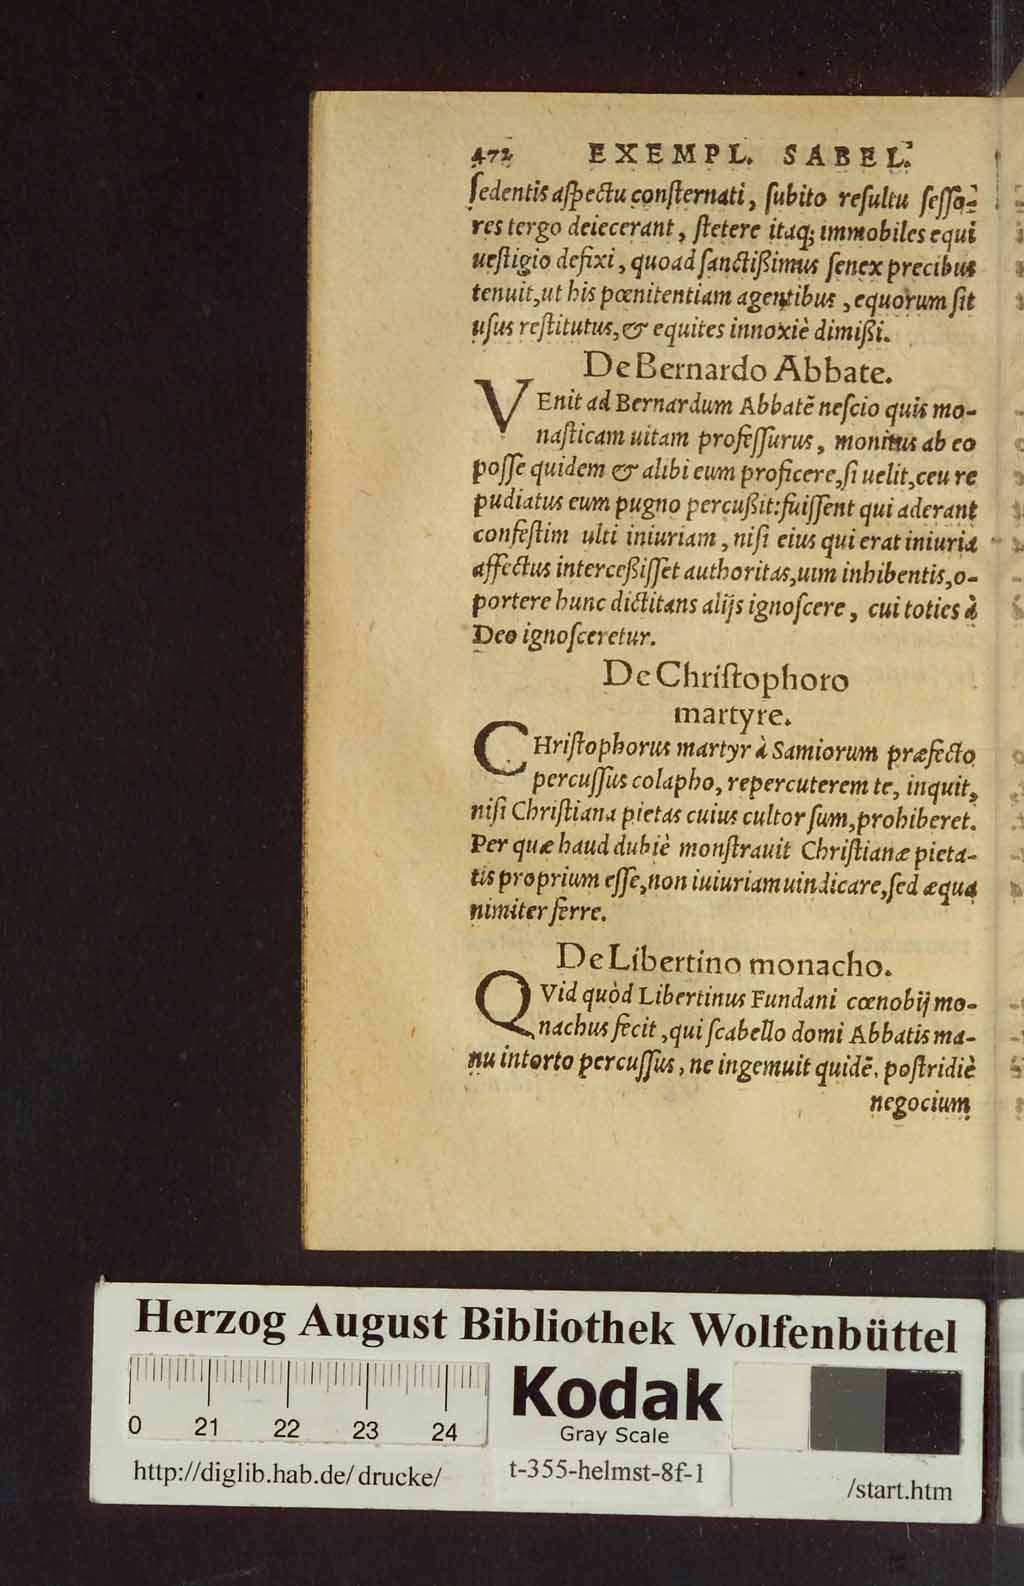 472 EXEMPL. SABEL.
ſedentis aſpectu conſternati, ſubito reſultu ſeſſo-
res tergo deiecerant, ſtetere itaq; immobiles equi
ueſtigio defixi, quoad ſanctißimus ſenex precibus
tenuit, ut his pœnitentiam agentibus, equorum ſit
uſus reſtitutus, & equites innoxiè dimißi.
De Bernardo Abbate.
VEnit ad Bernardum Abbatē neſcio quis mo-
naſticam uitam profeſſurus, monitus ab eo
poſſe quidem & alibi eum proficere, ſi uelit, ceu re
pudiatus eum pugno percußit: fuiſſent qui aderant
confeſtim ulti iniuriam, niſi eius qui erat iniuria
affectus interceßiſſet authoritas, uim inhibentis, o-
portere hunc dictitans alijs ignoſcere, cui toties à
Deo ignoſceretur.
De Chriſtophoro
martyre.
CHriſtophorus martyr à Samiorum præfecto
percuſſus colapho, repercuterem te, inquit,
niſi Chriſtiana pietas cuius cultor ſum, prohiberet.
Per quæ haud dubiè monſtrauit Chriſtianæ pieta-
tis proprium eſſe, non iuiuriam uindicare, ſed æqua
nimiter ferre.
De Libertino monacho.
QVid quòd Libertinus Fundani cœnobij mo-
nachus fecit, qui ſcabello domi Abbatis ma-
nu intorto percuſſus, ne ingemuit quidē. poſtridiè
negocium
Herzog August Bibliothek Wolfenbüttel
0 21 22 23 24
Kodak
Gray Scale
http://diglib.hab.de/drucke/ t-355-helmst-8f-1 /start.htm